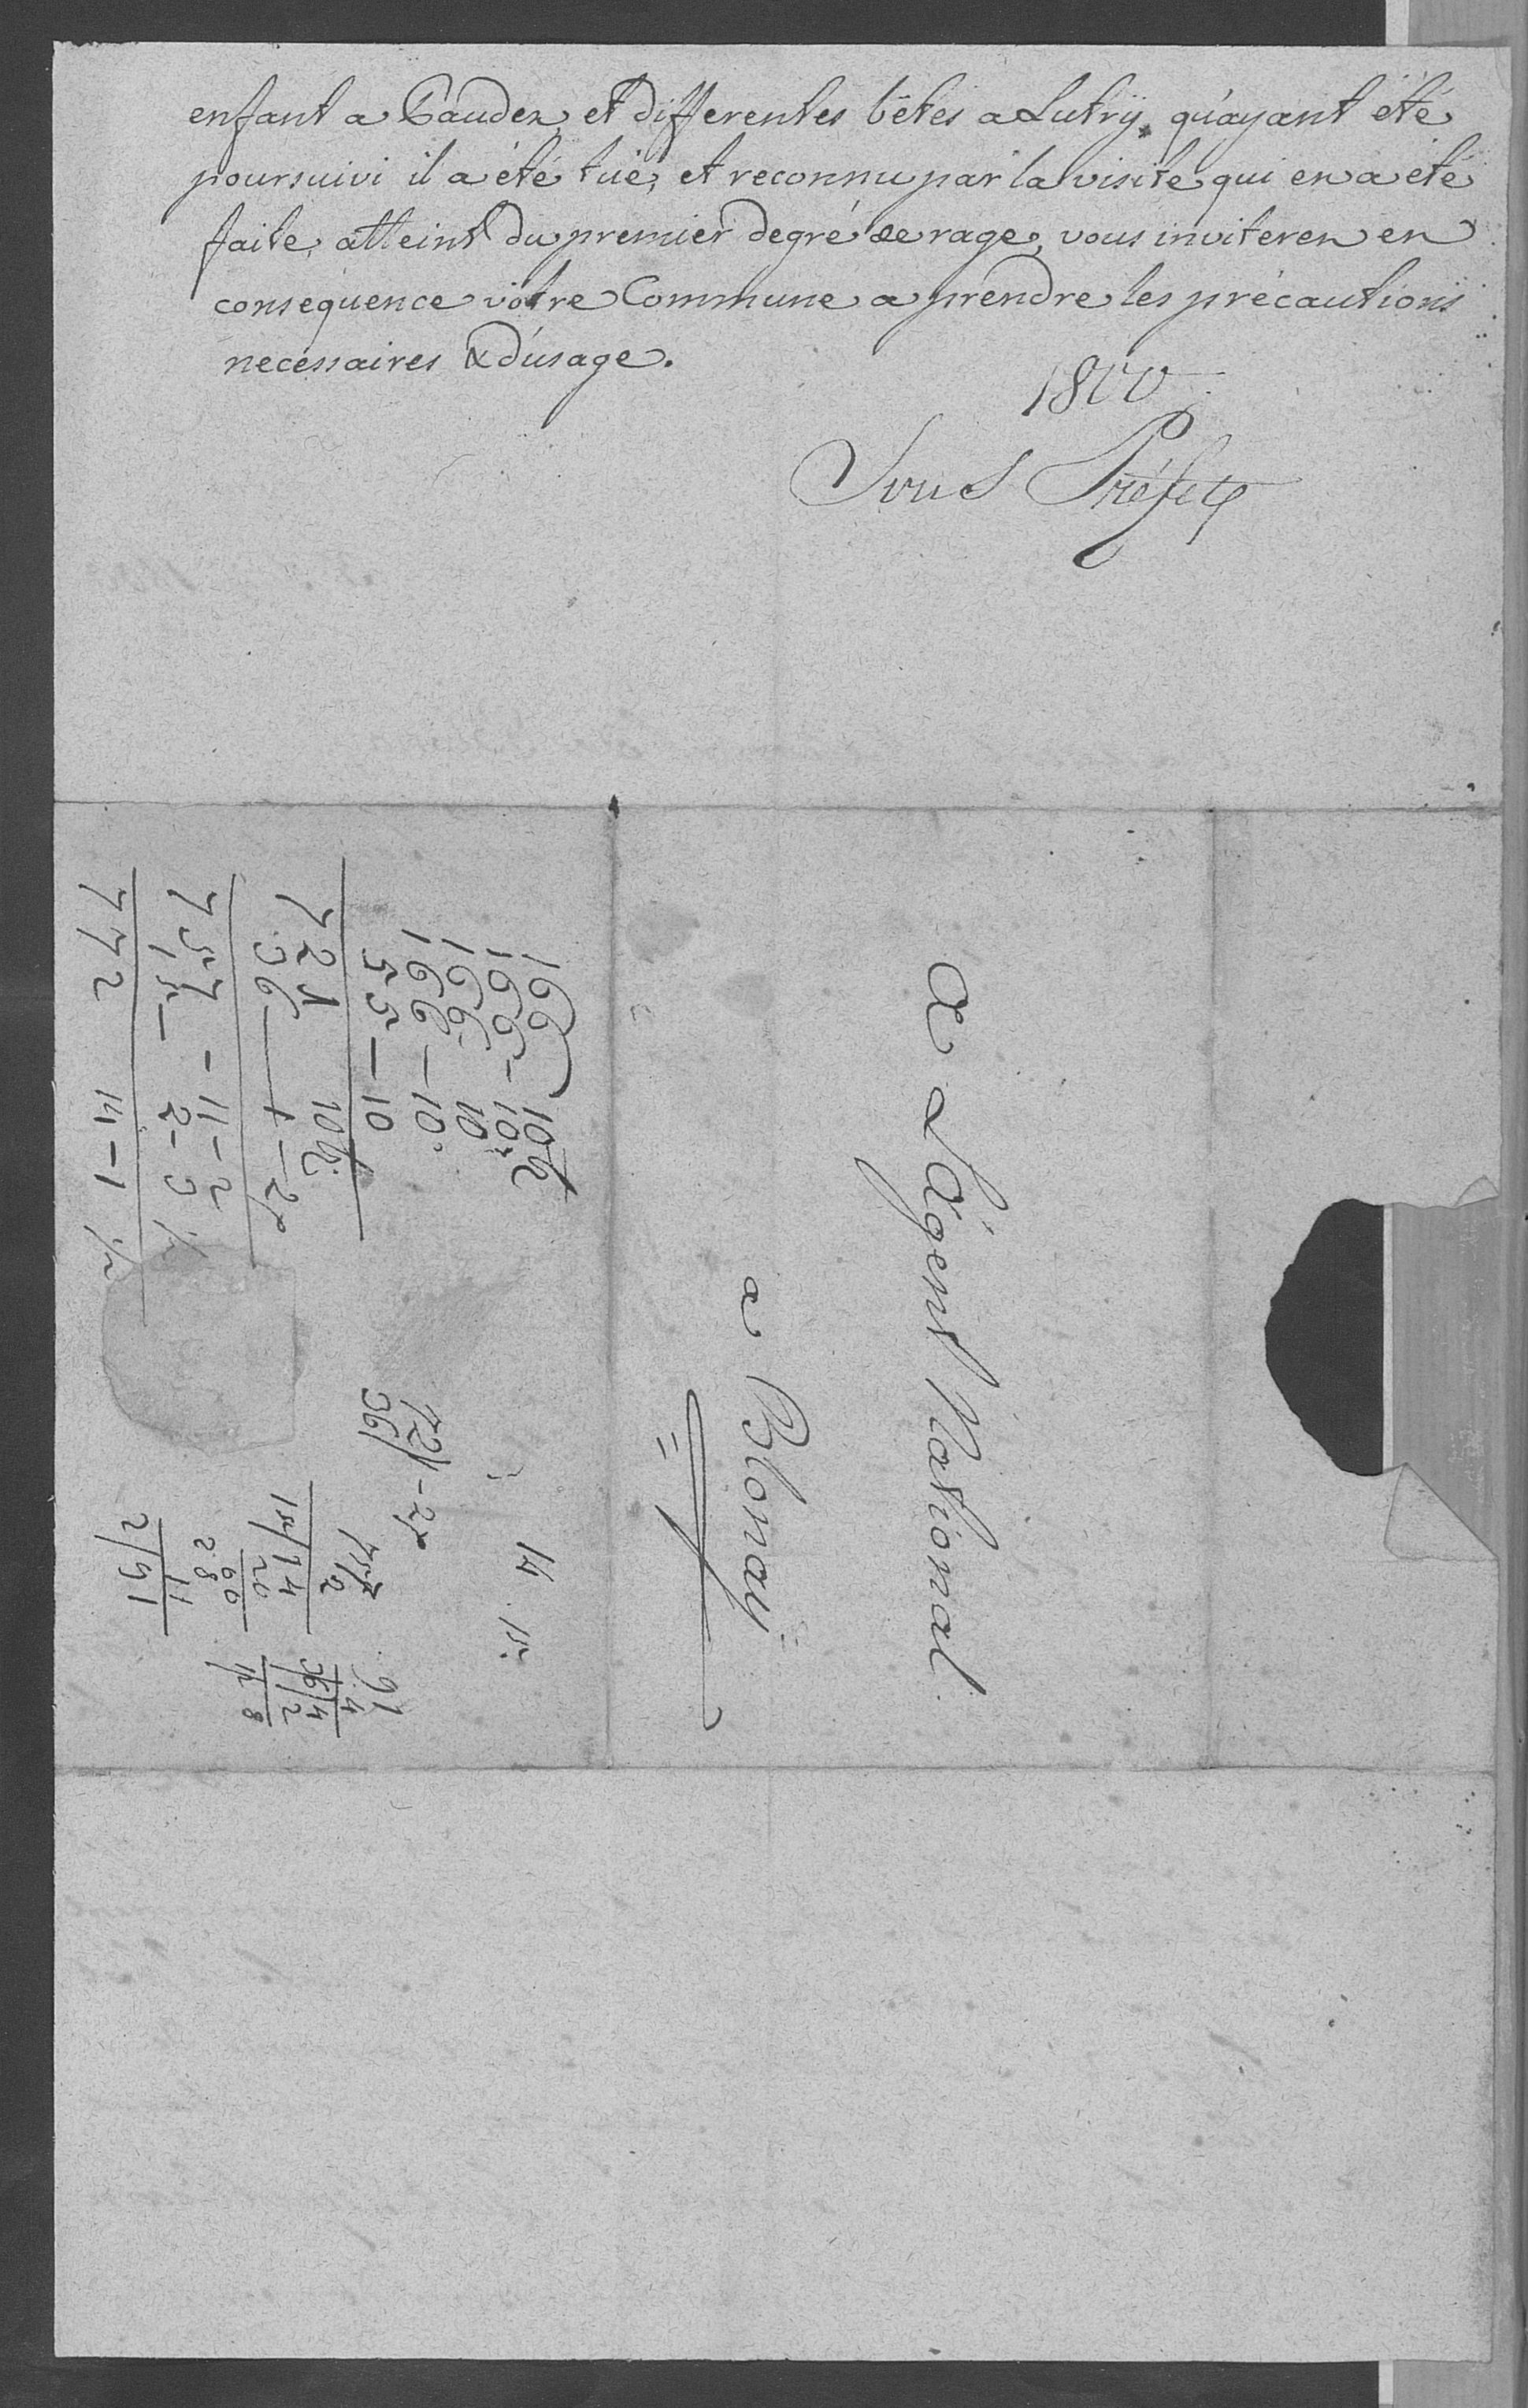 enfant a Paudex, et differentes bêtes a Lutry, qu'ayant été
poursuivi il a été tué, et reconnu par la visite qui en a été
faite, atteint du premier degré de rage, vous inviterez en
consequence vôtre Commune a prendre les précautions
necessaires & d'usage.
1800
Sous Préfet
A L'Agent National
a Blonay
166 10 1/2
166 - 10
166 10
166 - 10
55 - 10
721 10 1/2
36
757 - 11 - 2
15 - 2 - 3
772 14 - 1
14 15
721 - 2
36
757
2
1514
20
28
2/91
91
4
364
2